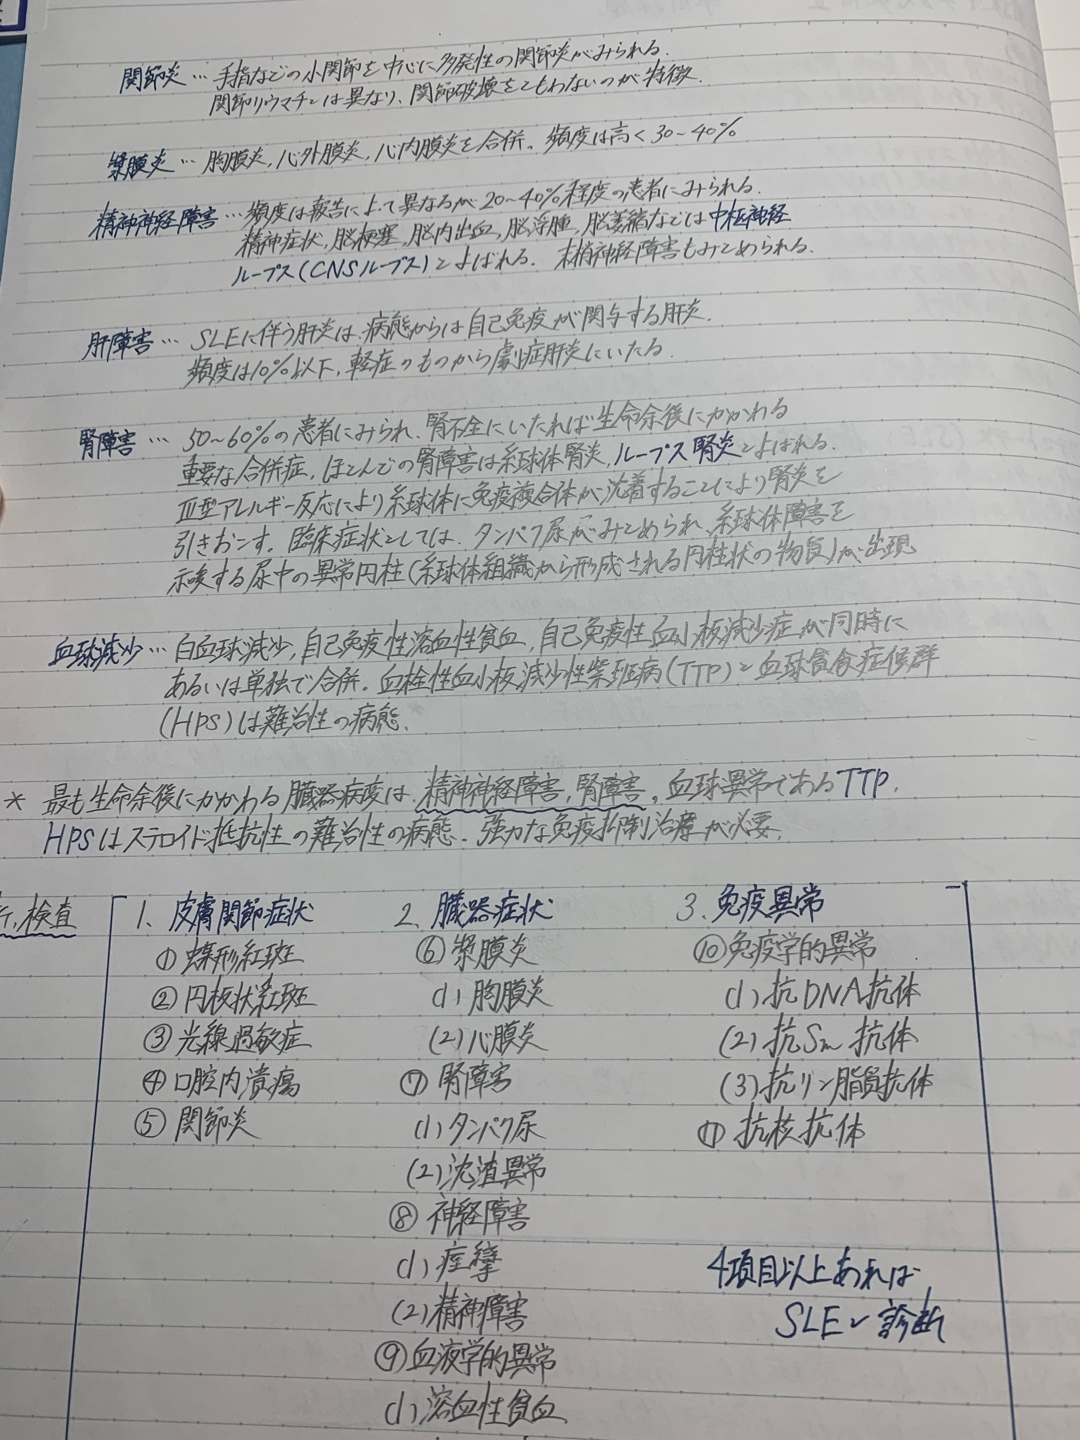 関節炎… 手指などの小関節を中心に多発性の関節炎がみられる.
関節リウマチとは異なり、関節破壊をともわないのが特徴.
漿膜炎… 胸膜炎, 心外膜炎, 心内膜炎を合併. 頻度は高く30~40%
精神神経障害… 頻度は報告によって異なるが20~40%程度の患者にみられる.
精神症状, 脳梗塞, 脳内出血, 脳浮腫, 脳萎縮などでは中枢神経
ループス(CNSループス)とよばれる. 末梢神経障害もみとめられる.
肝障害… SLEに伴う肝炎は、病態からは自己免疫が関与する肝炎.
頻度は10%以下, 軽症のものから劇症肝炎にいたる.
腎障害… 50~60%の患者にみられ、腎不全にいたれば生命余後にかかわる
重要な合併症. ほとんどの腎障害は糸球体腎炎, ループス腎炎とよばれる.
Ⅲ型アレルギー反応により糸球体に免疫複合体が沈着することにより腎炎を
引きおこす. 臨床症状としては、タンパク尿がみとめられ、糸球体障害を
示唆する尿中の異常円柱(糸球体組織から形成される円柱状の物質)が出現
血球減少… 白血球減少, 自己免疫性溶血性貧血, 自己免疫性血小板減少症が同時に
あるいは単独で合併. 血栓性血小板減少性紫斑病(TTP)と血球貪食症候群
(HPS)は難治性の病態.
* 最も生命余後にかかわる臓器病変は, 精神神経障害, 腎障害, 血球異常であるTTP,
HPSはステロイド抵抗性の難治性の病態. 強力な免疫抑制治療が必要.
検査
1. 皮膚関節症状
① 蝶形紅斑
② 円板状紅斑
③ 光線過敏症
④ 口腔内潰瘍
⑤ 関節炎
2. 臓器症状
⑥ 漿膜炎
(1) 胸膜炎
(2) 心膜炎
⑦ 腎障害
(1) タンパク尿
(2) 沈渣異常
⑧ 神経障害
(1) 痙攣
(2) 精神障害
⑨ 血液学的異常
(1) 溶血性貧血
3. 免疫異常
⑩ 免疫学的異常
(1) 抗DNA抗体
(2) 抗Sm抗体
(3) 抗リン脂質抗体
⑪ 抗核抗体
4項目以上あれば
SLEと診断